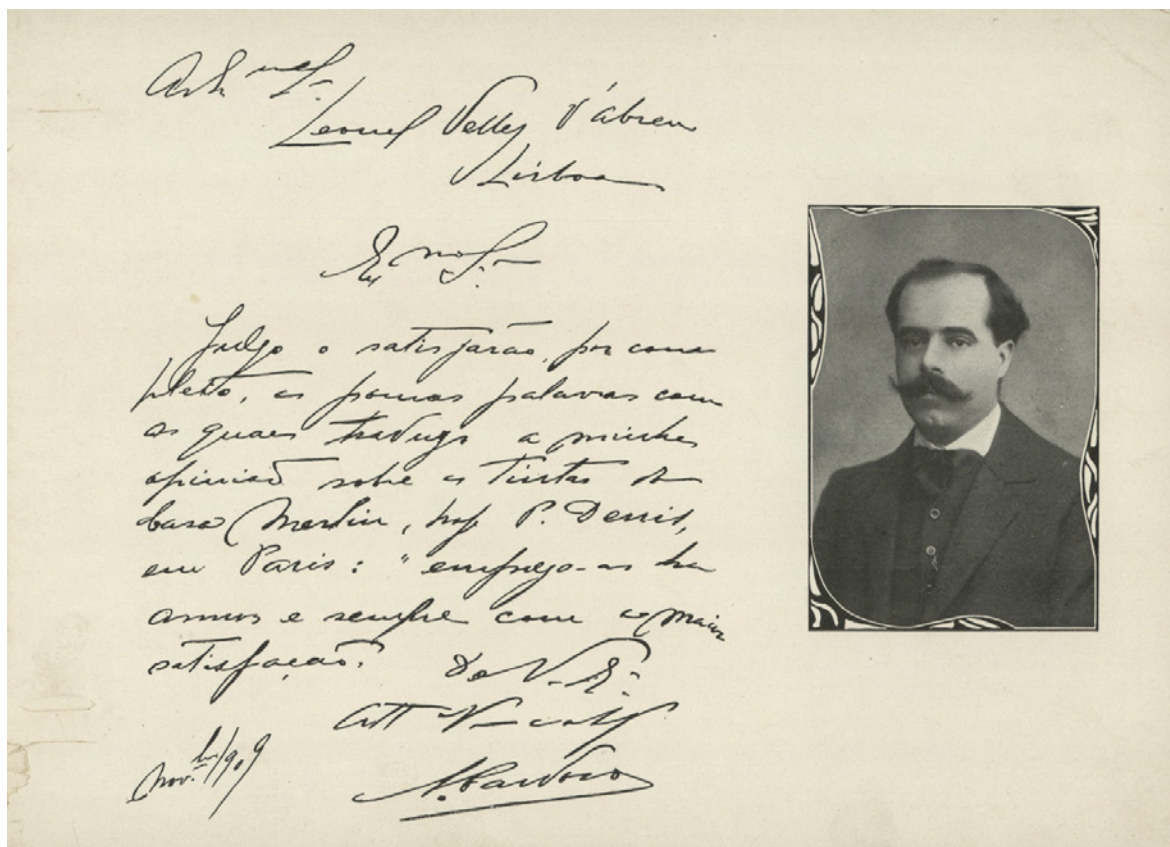 Leonel Velles d'Abreu
Lisboa
Ex.mo Sr.
Julgo o satisfarão, por com
pleto, as poucas palavras com
as quaes traduzo a minha
opinião sobre as tintas da
Casa Merlin, P. Denis,
em Paris: "emprego-as ha
annos e sempre com a maior
satisfação."
De V. Ex.ª
Att.
Nov.bro/909
A. Cardoso